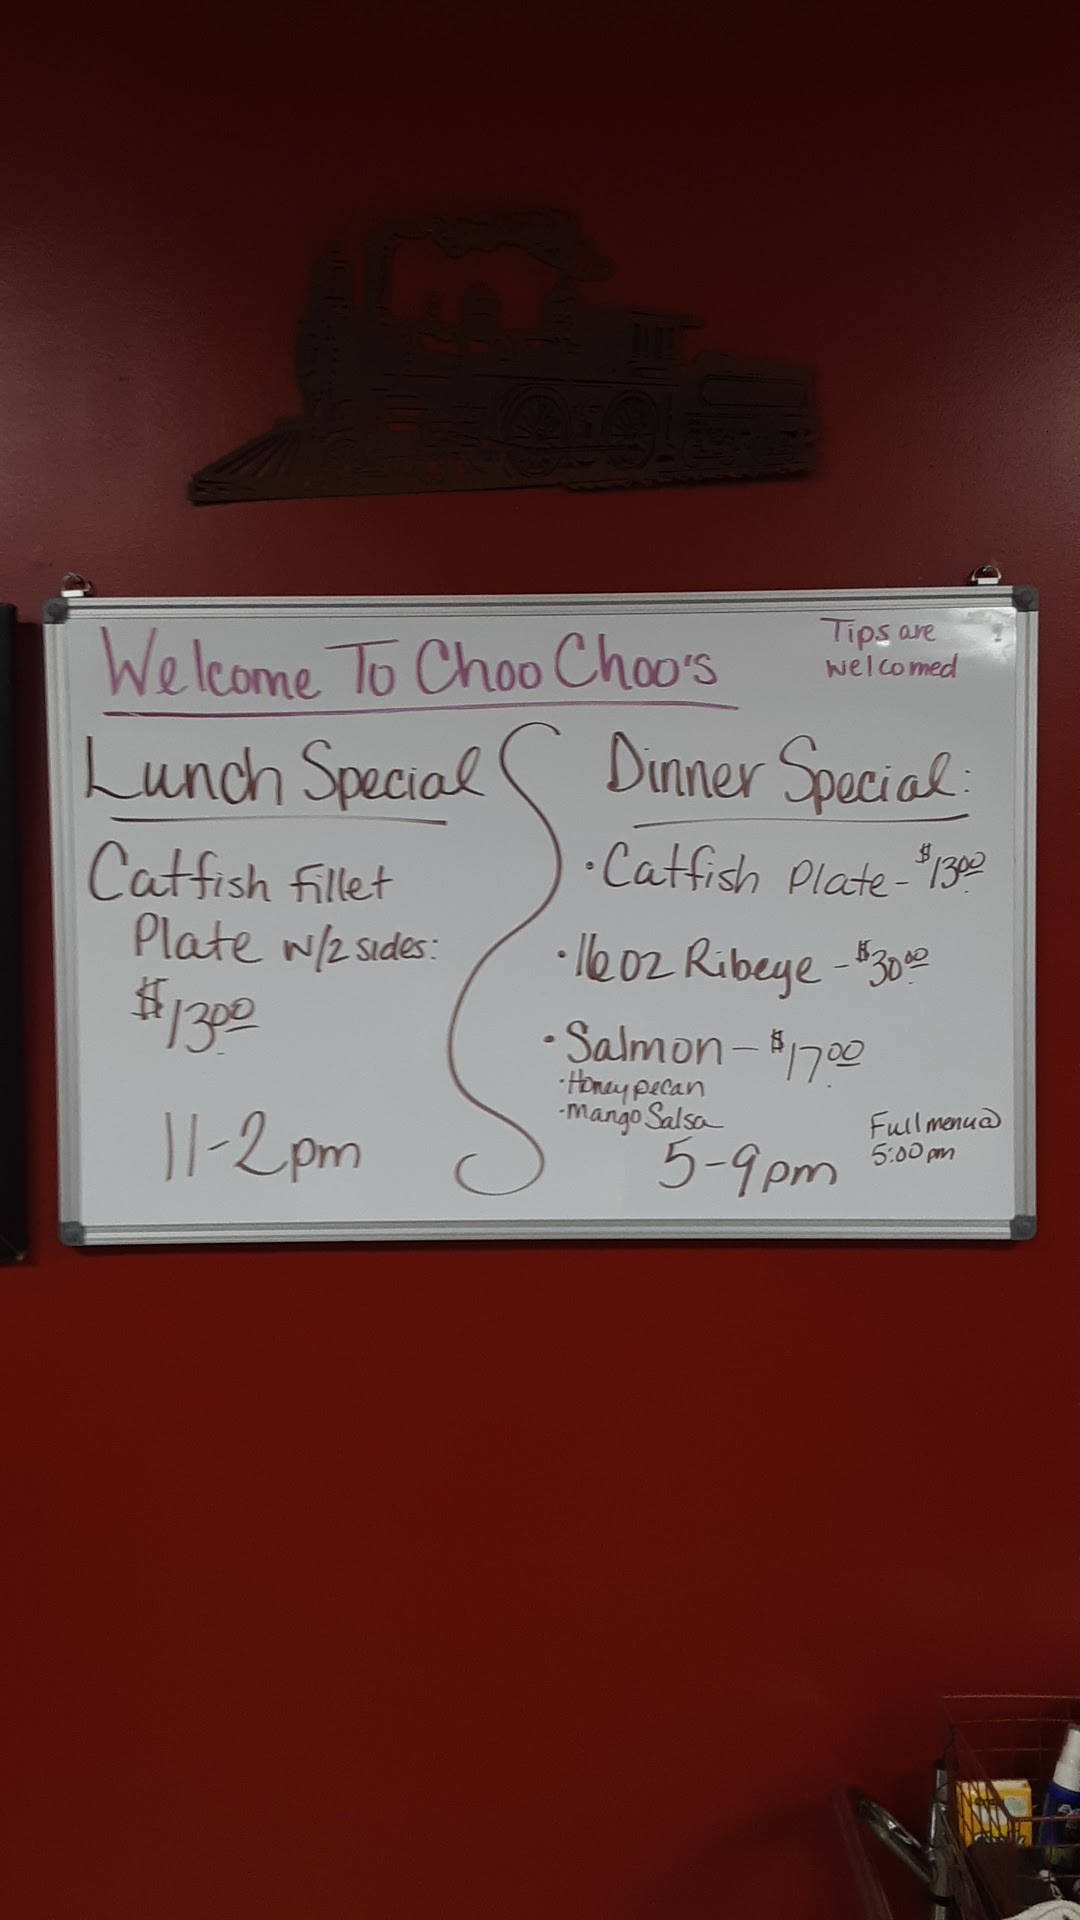 Welcome To Choo Choo's
Tips are
welcomed
Lunch Special
Catfish fillet
Plate w/2 sides:
$13.00
11-2pm
Dinner Special:
·Catfish Plate - $13.00
·16oz Ribeye - $30.00
·Salmon - $17.00
·Honey pecan
·mango Salsa
5-9pm
Full menu @
5:00pm